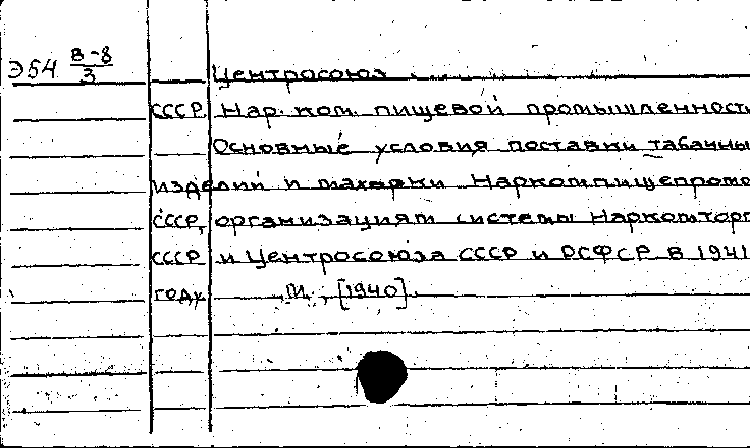 Э54 В-8/3 Центросоюз
СССР. Нар. ком. пищевой промышленност
Основные условия поставки табачны
изделий и махорки Наркомпищепром
СССР, организациям системы Наркомторг
СССР и Центросоюза СССР и РСФСР в 1941
году. М., [1940].